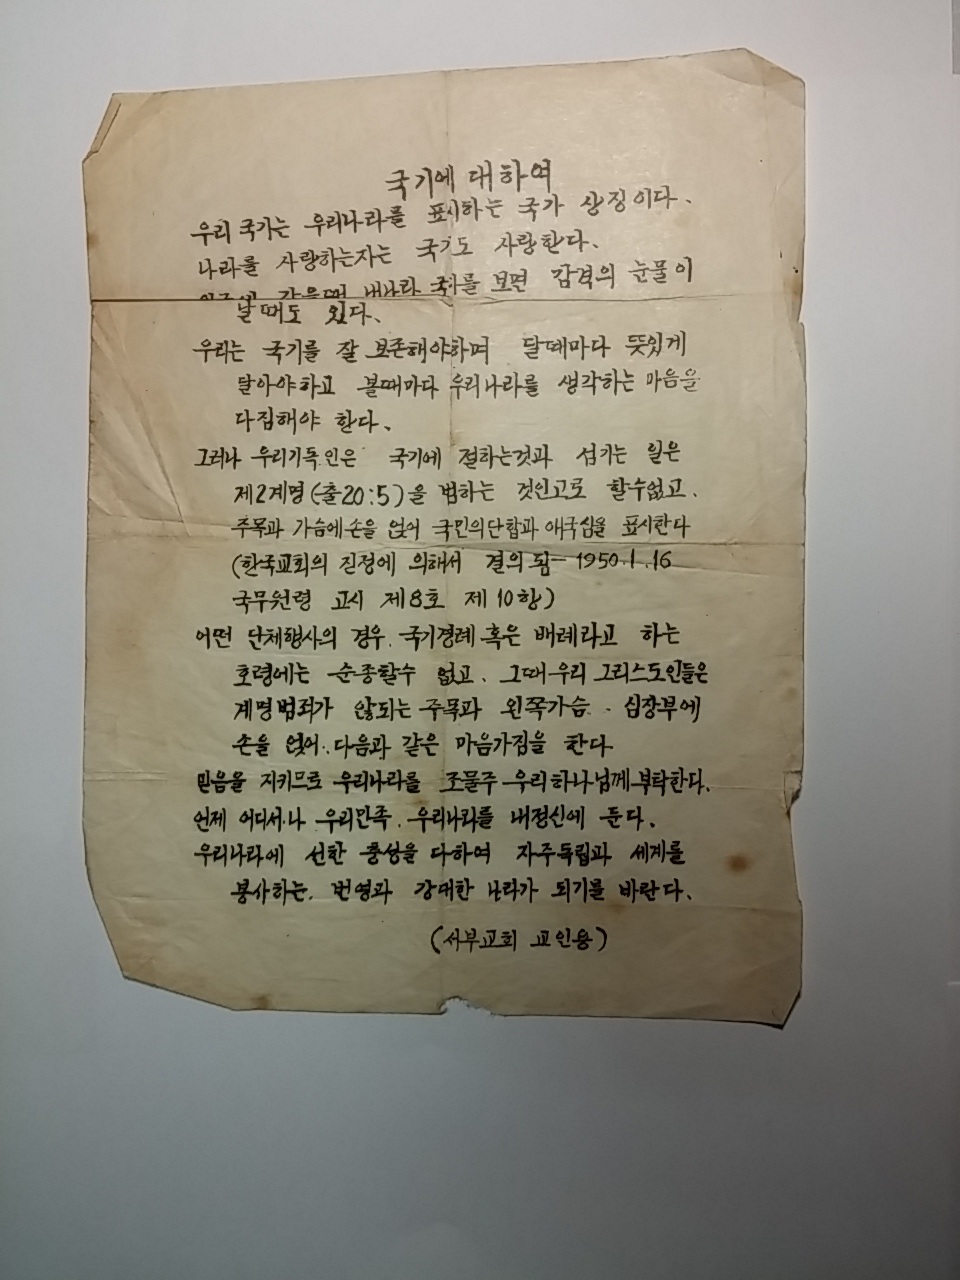 국기에 대하여
우리 국가는 우리나라를 표시하는 국가 상징이다.
나라를 사랑하는자는 국기도 사랑한다.
갔을때 내나라 국기를 보면 감격의 눈물이
날때도 있다.
우리는 국기를 잘 보존해야하며 달때마다 뜻있게
달아야하고 볼때마다 우리나라를 생각하는 마음을
다짐해야 한다.
그러나 우리기독인은 국기에 절하는것과 섬기는 일은
제2계명(출20:5)을 범하는 것인고로 할수없고.
주목과 가슴에손을 얹어 국민의단합과 애국심을 표시한다
(한국교회의 진정에 의해서 결의됨- 1950.1.16
국무원령 고시 제8호 제10항)
어떤 단체행사의 경우. 국기경례 혹은 배례라고 하는
호령에는 순종할수 없고. 그때우리 그리스도인들은
계명범죄가 않되는 주목과 왼쪽가슴. 심장부에
손을 얹어. 다음과 같은 마음가짐을 한다
믿음을 지키므로 우리나라를 조물주 우리하나님께부탁한다.
언제 어디서나 우리민족. 우리나라를 내정신에 둔다.
우리나라에 선한 충성을 다하여 자주독립과 세계를
봉사하는. 번영과 강대한 나라가 되기를 바란다.
(서부교회 교인용)